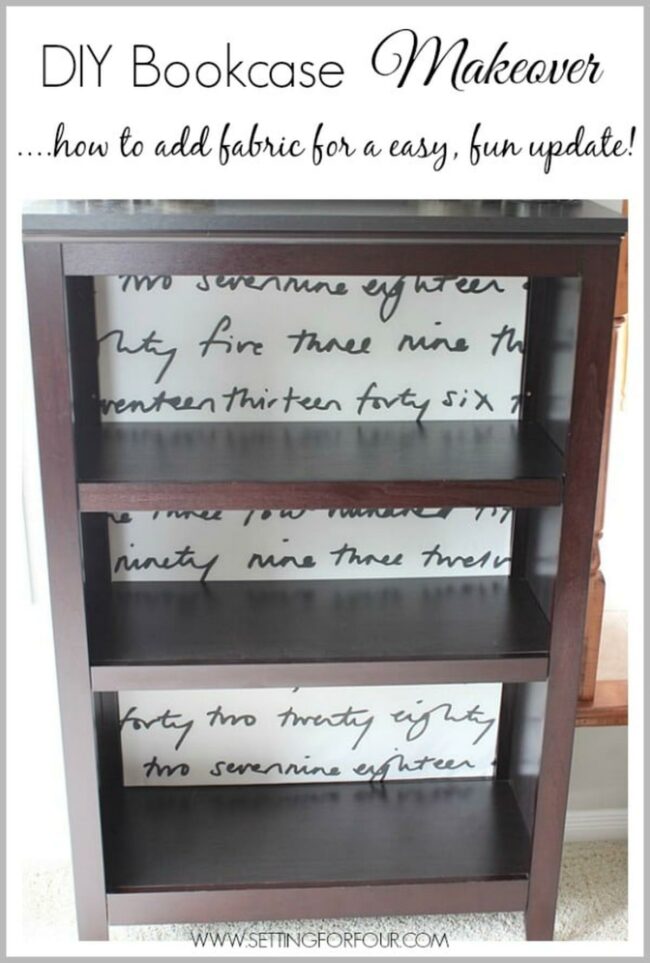 DIY Bookcase Makeover
....how to add fabric for a easy, fun update!
two sevennine eighteen
five three nine th
venteen thirteen forty six
three four hundred
ninety nine three twelv
forty two twenty eighty
two sevennine eighteen
WWW.SETTINGFORFOUR.COM